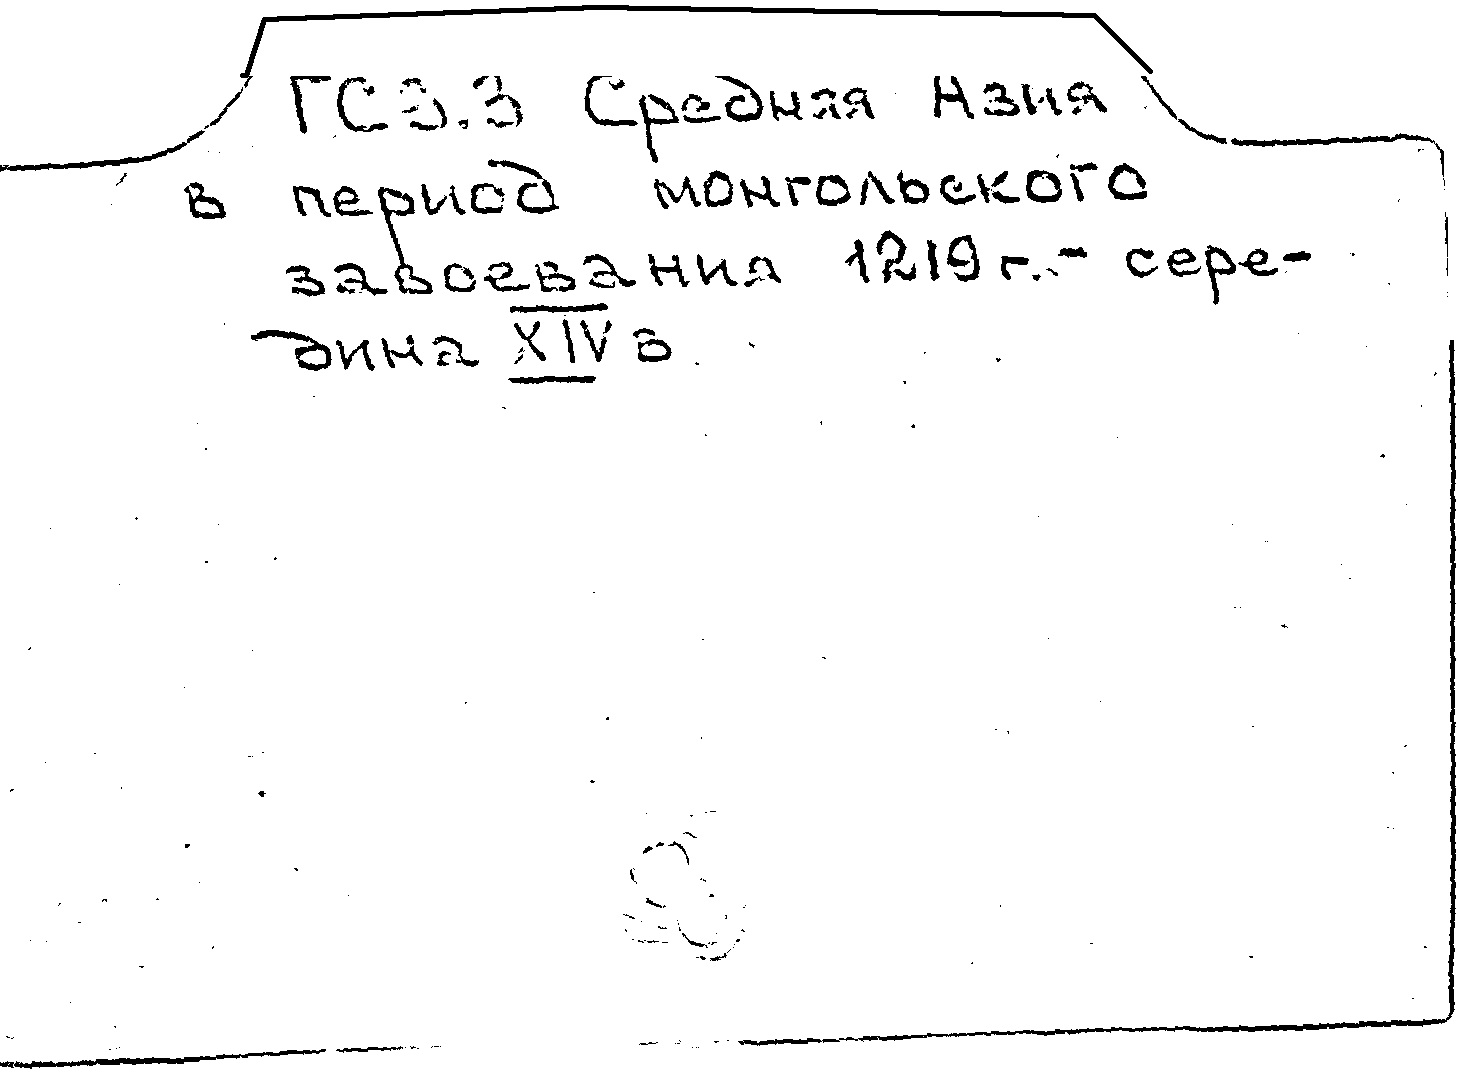 ГС3.3 Средняя Азия
в период монгольского
завоевания 1219 г.- сере-
дина XIV в